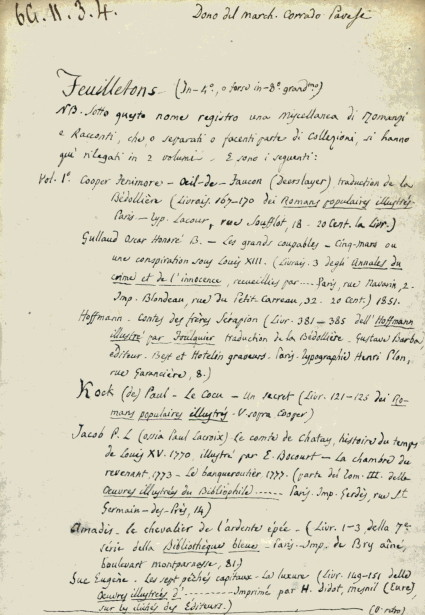 6G. 11. 3. 4.
Dono del march. Corrado Pavese
Feuilletons — (In-4°, o forse in-8°. grandmo)
NB. Sotto questo nome registro una miscellanea di Romanzi
e Racconti, che, o separati o facenti parte di Collezioni, si hanno
quì rilegati in 2 volumi. E sono i seguenti:
Vol. 1°. Cooper Fenimore — Œil-de-Faucon (Deerslayer), traduction de la
Bédollière (Livrais. 167-170 dei Romans populaires illustrés.
Paris — Typ. Lacour, rue Soufflot, 18. 20 Cent. la Livr.)
Gullaud Oscar Honoré B. — Les grands coupables — Cinq-mars ou
une conspiration sous Louis XIII. (Livrais. 3 degli Annales du
crime et de l'innocence, recueillies par .... Paris, rue Mavarin, 2.
Imp. Blondeau, rue du Petit-Carreau, 32. 20 Cent.) 1851.
Hoffmann. Contes des frères Sérapion (Livr. 381-385 dell'Hoffmann
illustré par Foulquier traduction de la Bédollière. Gustave Barba,
éditeur. Best et Hotelin graveurs. Paris. Typographie Henri Plon,
rue Garancière, 8.)
Kock (de) Paul — Le Cocu — Un secret (Livr. 121-125 dei Ro-
mans populaires illustrés. V. sopra Cooper)
Jacob P. L. (ossia Paul Lacroix) le comte de Chatay, histoire du temps
de Louis XV. 1770. illustré par E. Bocourt — La chambre du
revenant, 1773 — Le banqueroutier. 1777. (parte del Tom. III. delle
Œuvres illustrées du Bibliophile ........ Paris. Imp. Gerdès, rue St
Germain-des-Près, 14)
Amadis. le chevalier de l'ardente épée. (Livr. 1-3 della 7e
série della Bibliothèque bleue. Paris. Imp. de Bry aîné,
boulevart montparnasse, 81.)
Sue Eugène. Les sept péchés capitaux. La luxure (Livr. 149-151 delle
Œuvres illustrées d'........ Imprimé par H. Didot, mesnil (Eure)
sur les clichés des Éditeurs.)
(V. retro)